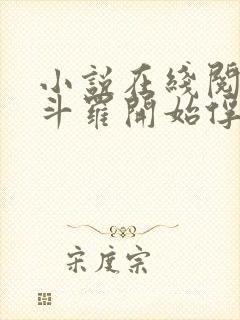 小説在綫閱
斗羅開始俘
宋度宗